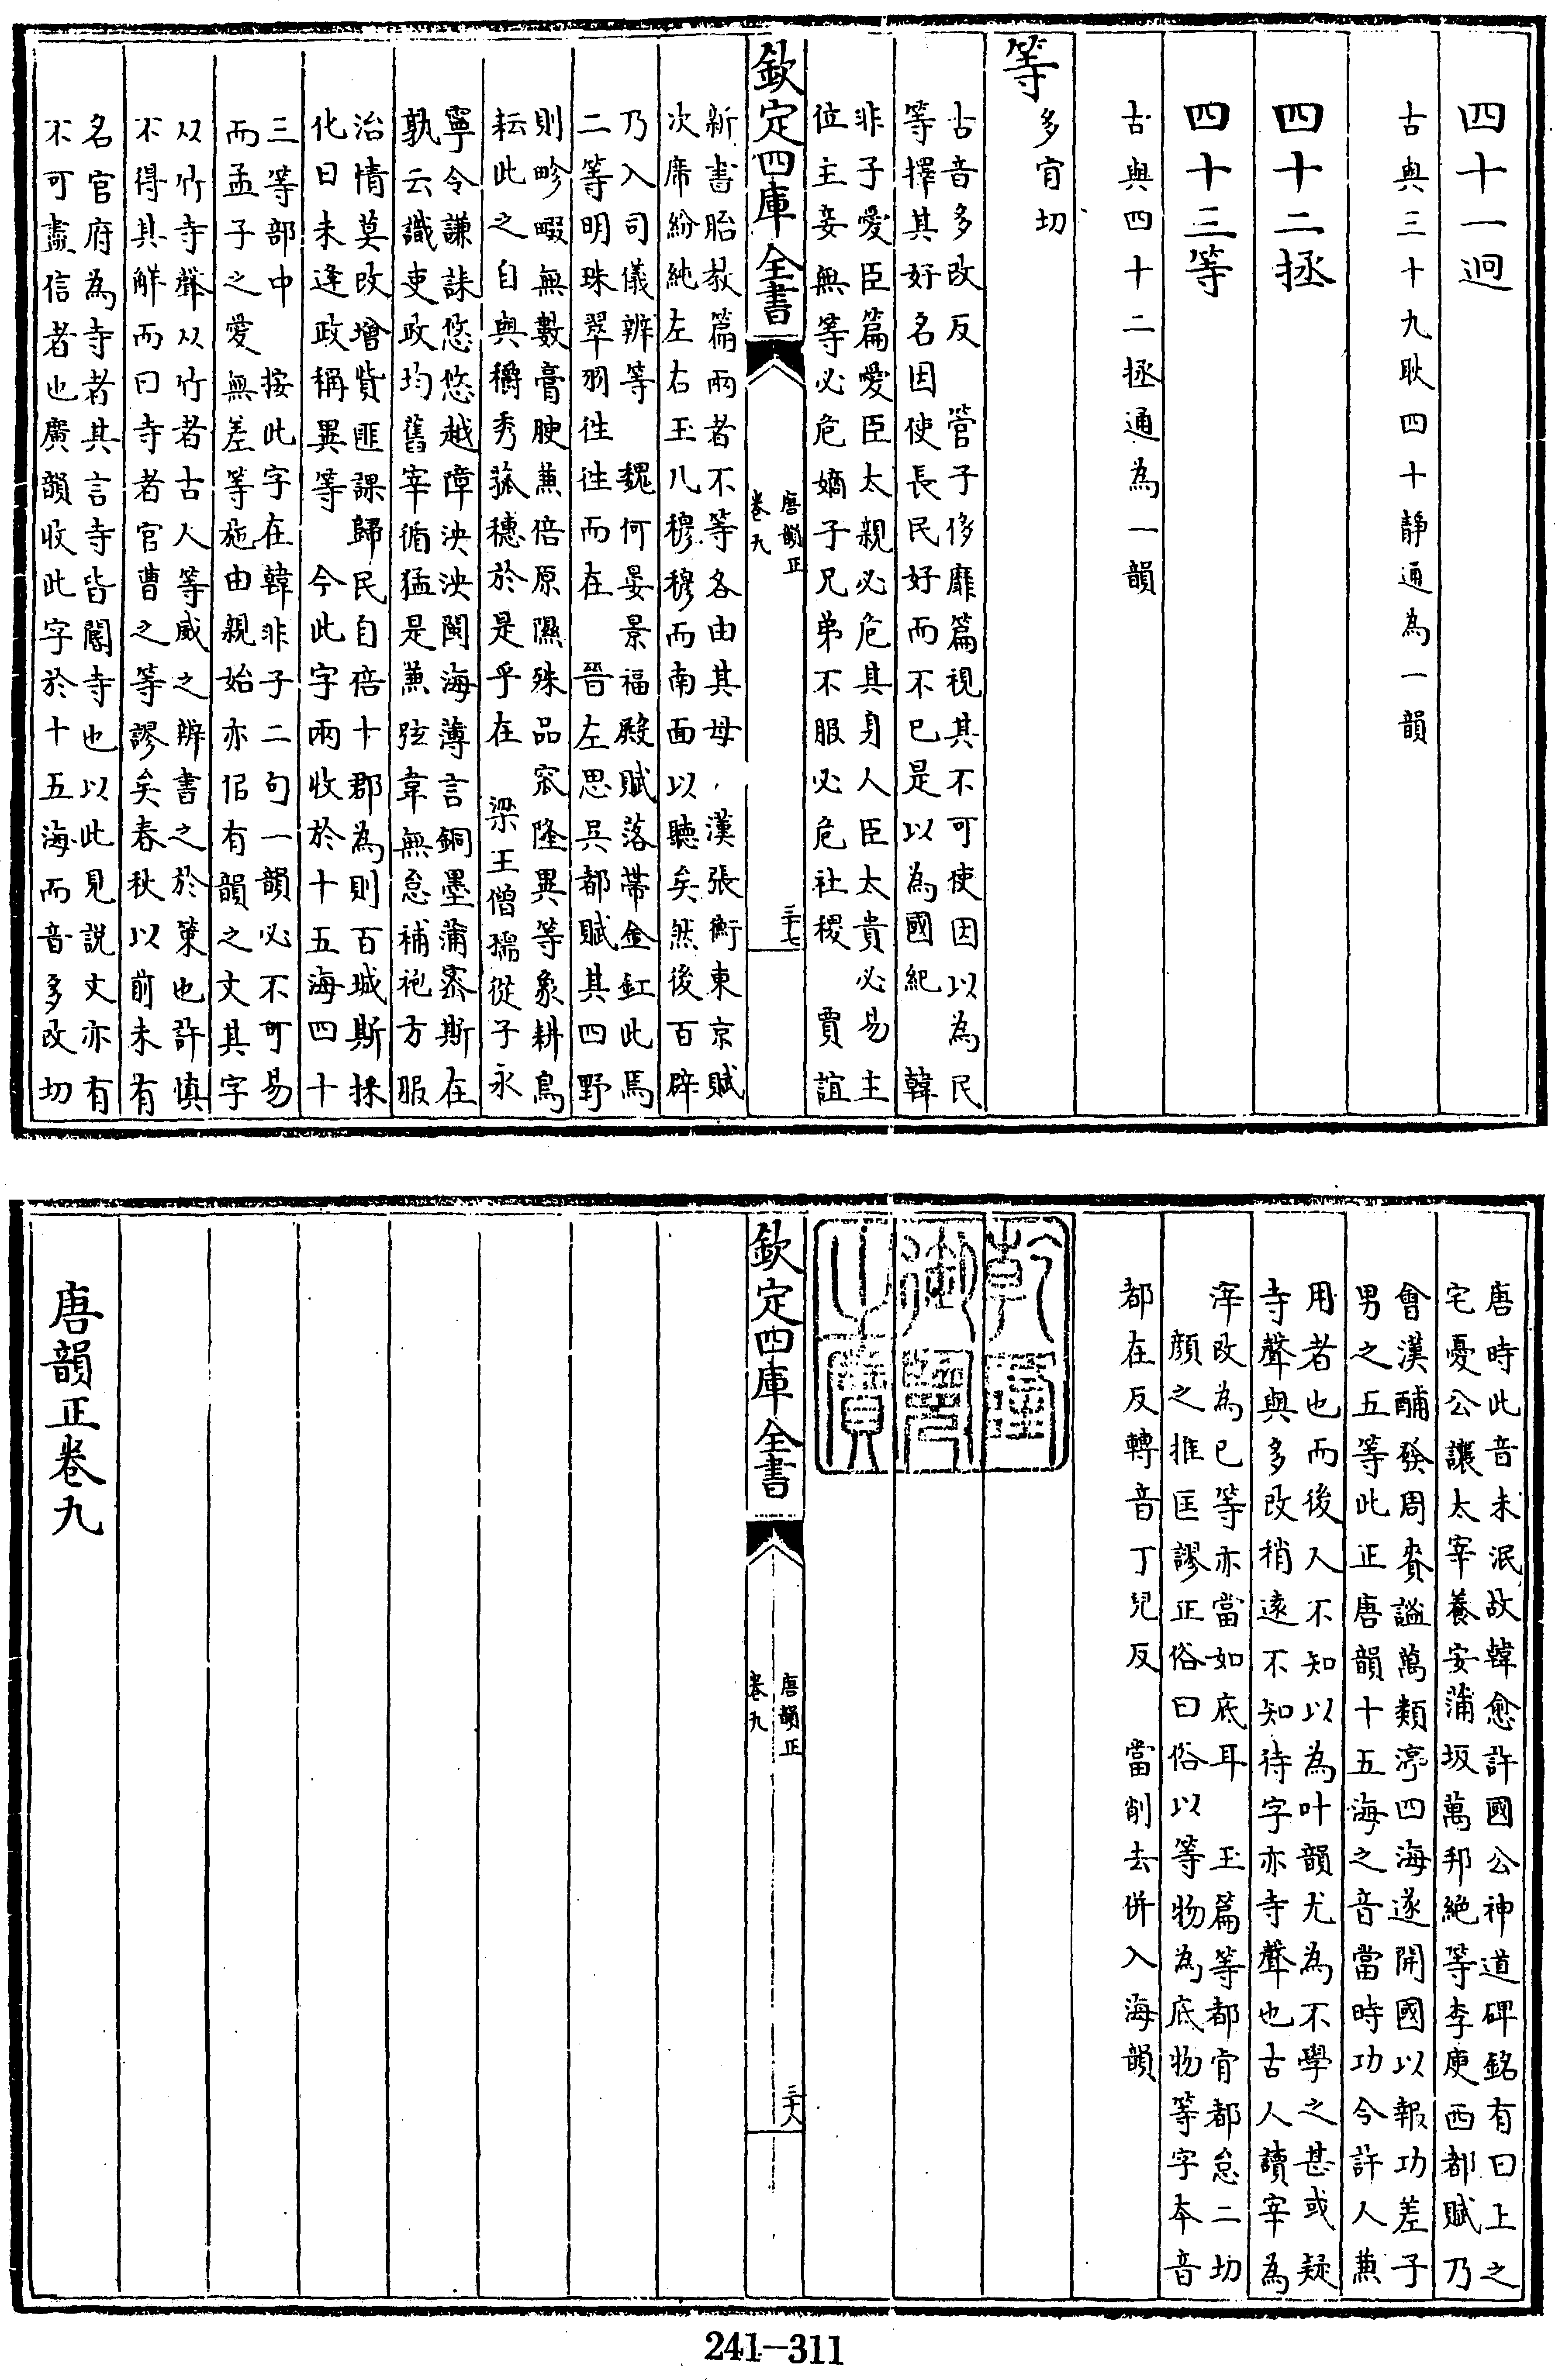 四十一迥
古與三十九耿四十靜通為一韻
四十二拯
四十三等
古與四十二拯通為一韻
等多肯切
古音多改反　管子侈靡篇視其不可使因以為民
等擇其好名因使長民好而不已是以為國紀　韓
非子愛臣篇愛臣太親必危其身人臣太貴必易主
位主妾無等必危嫡子兄弟不服必危社稷　賈誼
欽定四庫全書
唐韻正
卷九
三十七
新書胎教篇兩者不等各由其母　漢張衡東京賦
次席紛純左右玉几穆穆而南面以聽矣然後百辟
乃入司儀辨等　魏何晏景福殿賦落帶金釭此焉
二等明珠翠羽往往而在　晉左思吳都賦其四野
則畛畷無數膏腴兼倍原隰殊品窊隆異等象耕鳥
耘此之自與穱秀菰穗於是乎在　梁王僧孺從子永
寧令謙誄悠悠越障泱泱閩海薄言銅墨蒲密斯在
孰云識吏政均舊宰循猛是兼弦韋無怠補袍方服
治情莫改增貲匪課歸民自倍十郡為則百城斯採
化日未逢政稱異等　今此字兩收於十五海四十
三等部中　按此字在韓非子二句一韻必不可易
而孟子之愛無差等施由親始亦似有韻之文其字
以竹寺聲以竹者古人等威之辨書之於策也許慎
不得其解而曰寺者官曹之等謬矣春秋以前未有
名官府為寺者其言寺皆閽寺也以此見說文亦有
不可盡信者也廣韻收此字於十五海而音多改切
唐時此音未泯故韓愈許國公神道碑銘有曰上之
宅憂公讓太宰養安蒲坂萬邦絕等李庾西都賦乃
會漢酺發周賚謐萬類渟四海遂開國以報功差子
男之五等此正唐韻十五海之音當時功令許人兼
用者也而後人不知以為叶韻尤為不學之甚或疑
寺聲與多改稍遠不知待字亦寺聲也古人讀宰為
滓改為已等亦當如底耳　玉篇等都肯都怠二切
顏之推匡謬正俗曰俗以等物為底物等字本音
都在反轉音丁兒反　當削去併入海韻
乾隆
御覽
之寶
欽定四庫全書
唐韻正
卷九
三十八
唐韻正卷九
241-311